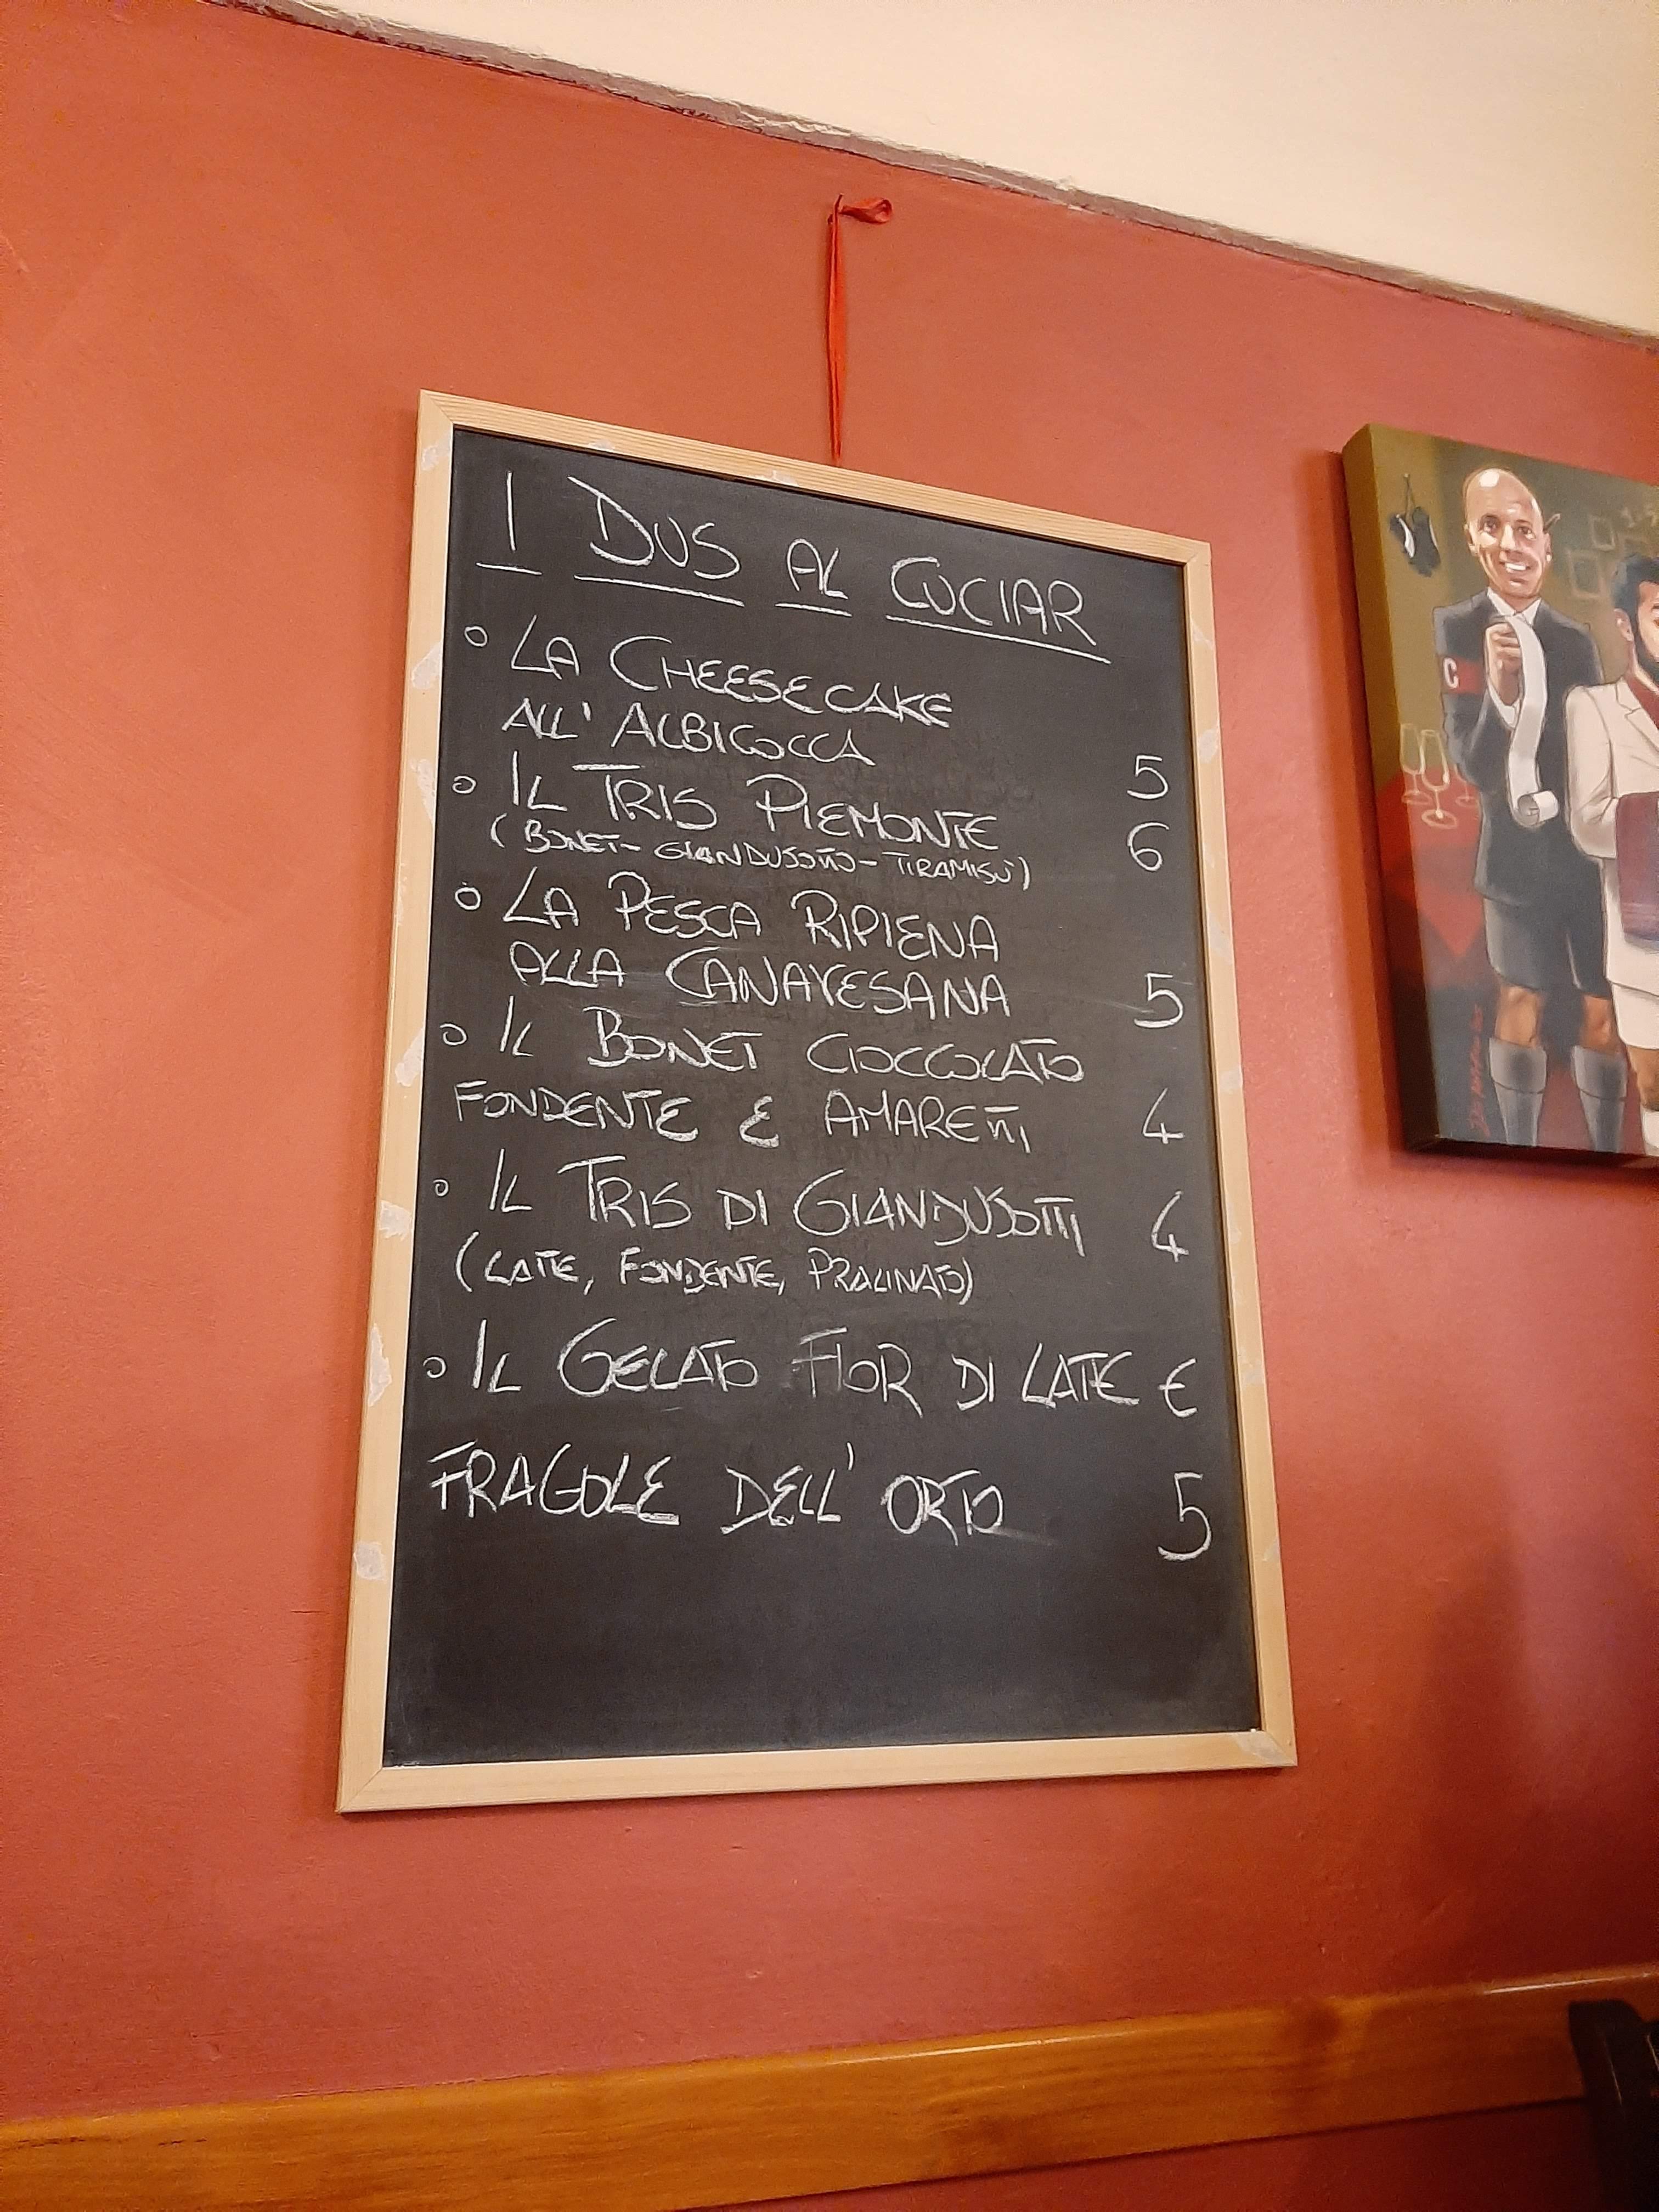 I DUS AL CUCIAR
° LA CHEESECAKE
ALL' ALBICOCCA 5
° IL TRIS PIEMONTE 6
(BONET- GIANDUJOTTO - TIRAMISÙ)
° LA PESCA RIPIENA
ALLA CANAVESANA 5
° IL BONET CIOCCOLATO
FONDENTE E AMARETTI 4
° IL TRIS DI GIANDUJOTTI 4
(LATTE, FONDENTE, PRALINATO)
° IL GELATO FIOR DI LATTE E
FRAGOLE DELL' ORTO 5
C